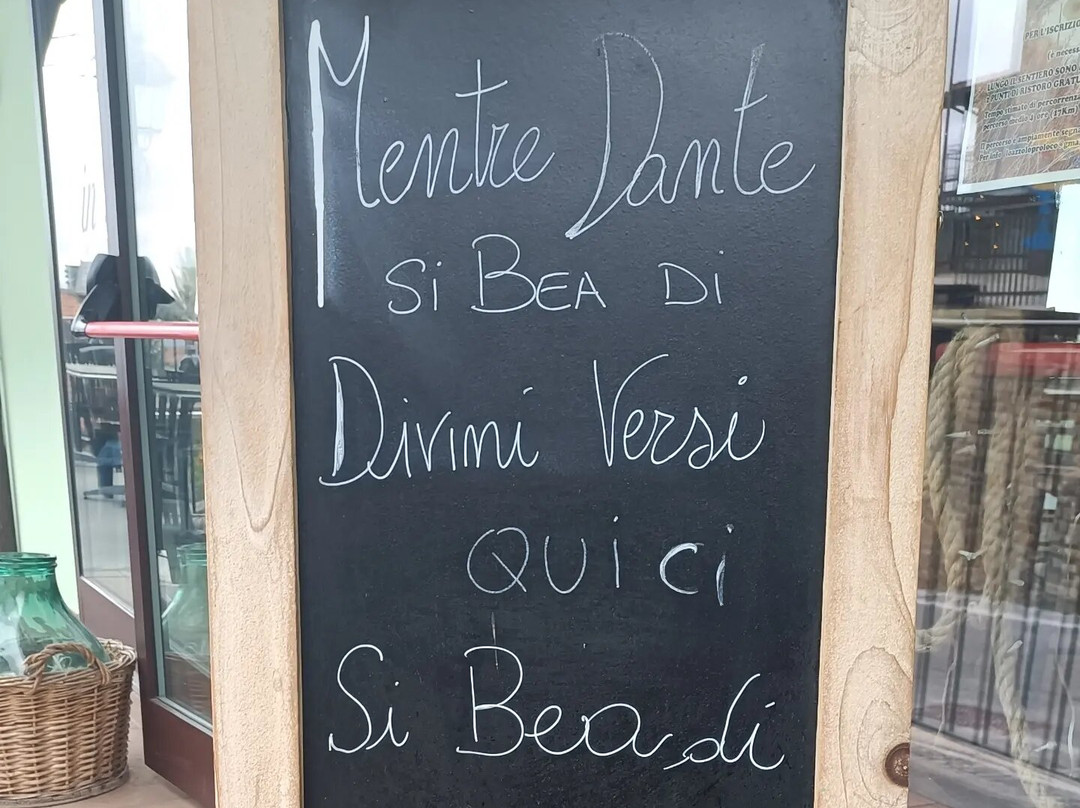 Mentre Dante
Si BEA Di
Divini Versi
QUi Ci
Si Bea di
PER L'ISCRIZIO
(è necess
LUNGO IL SENTIERO SONO
2 PUNTI DI RISTORO GRATU
Tempo stimato di percorrenza
percorso medio 4 ore (17Km)
Il percorso è ampiamente segn
in